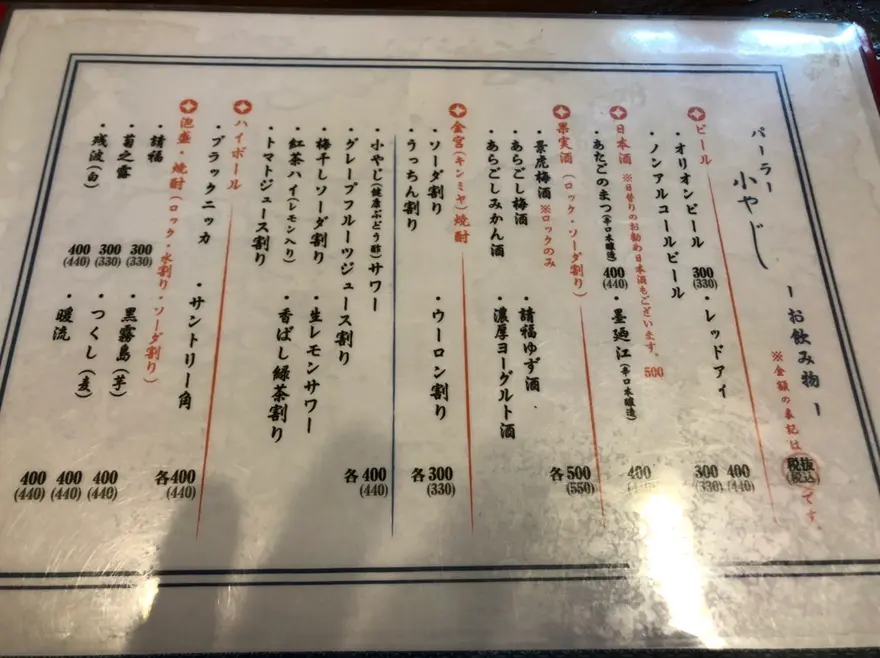 パーラー 小やじ
ー お飲み物 ー
※金額の表記は税抜(税込)です。
ビール
・オリオンビール 300 (330)
・レッドアイ 400 (440)
・ノンアルコールビール 300 (330)
日本酒 ※日替りのお勧め日本酒もございます。 500
・あたごのまつ(辛口本醸造) 400 (440)
・墨廼江(辛口本醸造) 400
果実酒 (ロック・ソーダ割り)
・景虎梅酒 ※ロックのみ
・請福ゆず酒
・あらごし梅酒
・濃厚ヨーグルト酒
・あらごしみかん酒
各500 (550)
金宮(キンミヤ)焼酎
・ソーダ割り
・ウーロン割り
・うっちん割り
各300 (330)
・小やじ(健康ぶどう酢)サワー
・グレープフルーツジュース割り
・梅干しソーダ割り
・生レモンサワー
・紅茶ハイ(レモン入り)
・香ばし緑茶割り
・トマトジュース割り
各400 (440)
ハイボール
・ブラックニッカ
・サントリー角
各400 (440)
泡盛・焼酎(ロック・水割り・ソーダ割り)
・請福 300 (330)
・黒霧島(芋) 400 (440)
・菊之露 300 (330)
・つくし(麦) 400 (440)
・残波(白) 400 (440)
・暖流 400 (440)